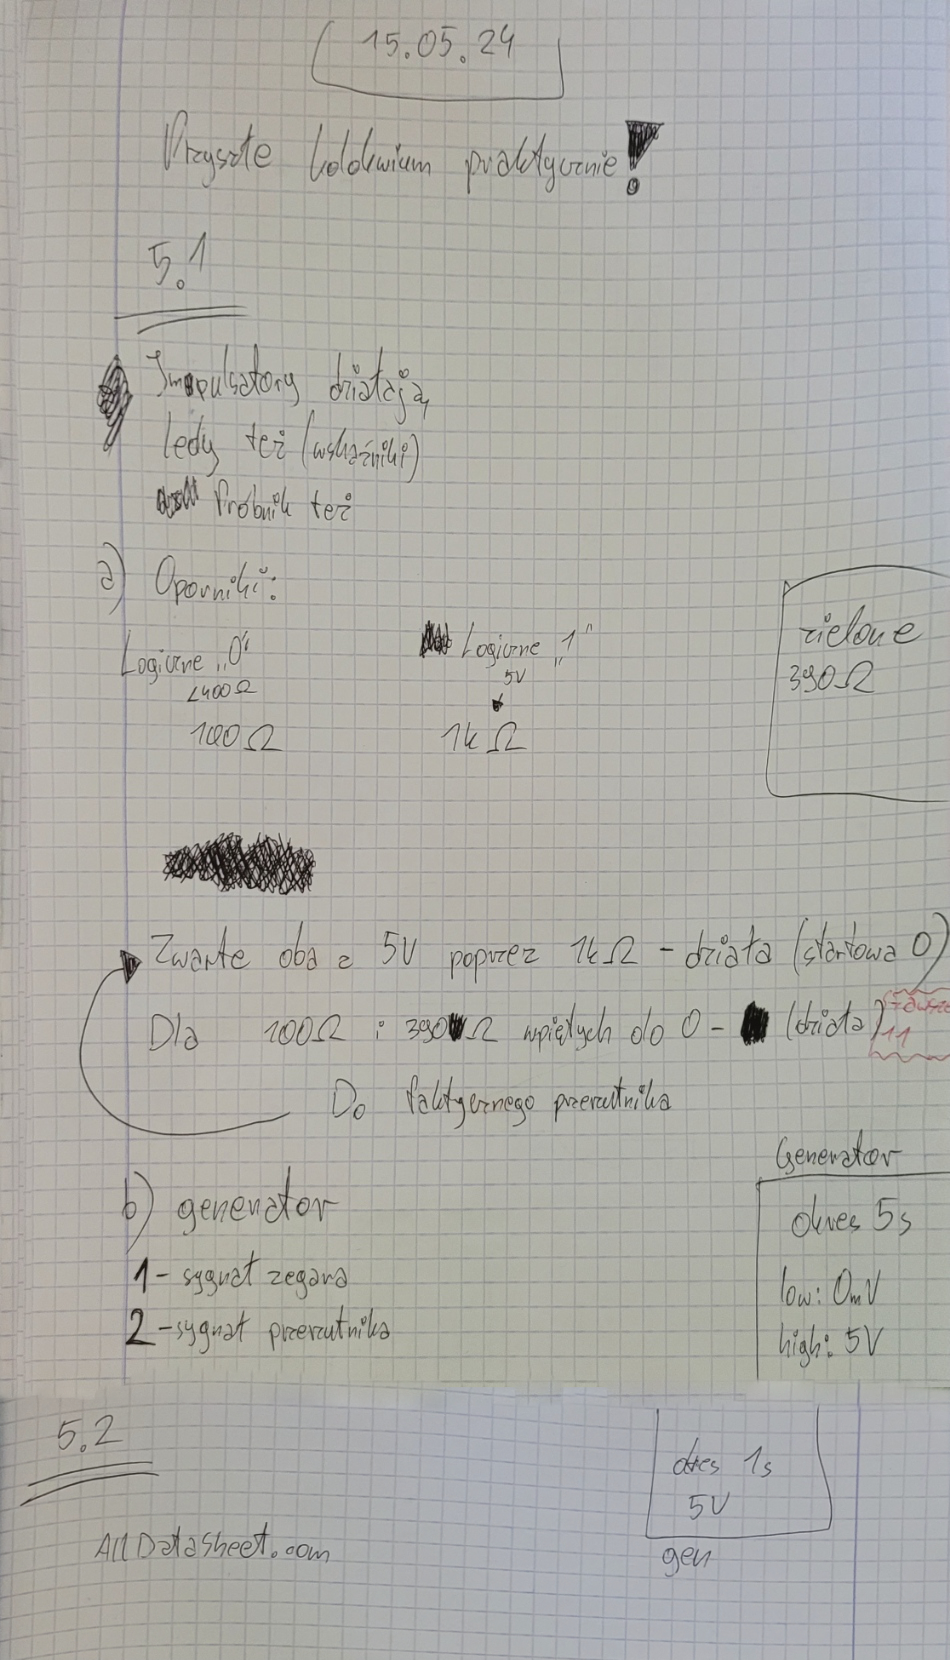 15.05.24
Przyszłe kolokwium praktycznie!
5.1
Impulsatory działają
ledy też (wskaźniki)
Próbnik też
a) Oporniki:
Logiczne „0"
<400Ω
100Ω
Logiczne „1"
5V
1kΩ
zielone
390Ω
Zwarte oba z 5V poprzez 1kΩ - działa (startowa 0)
Dla 100Ω i 390Ω wpiętych do 0 - (działa)
zawsze
11
Do faktycznego przerzutnika
b) generator
1 - sygnał zegara
2 - sygnał przerzutnika
Generator
okres 5s
low: 0mV
high: 5V
5.2
AllDatasheet.com
okres 1s
5V
gen